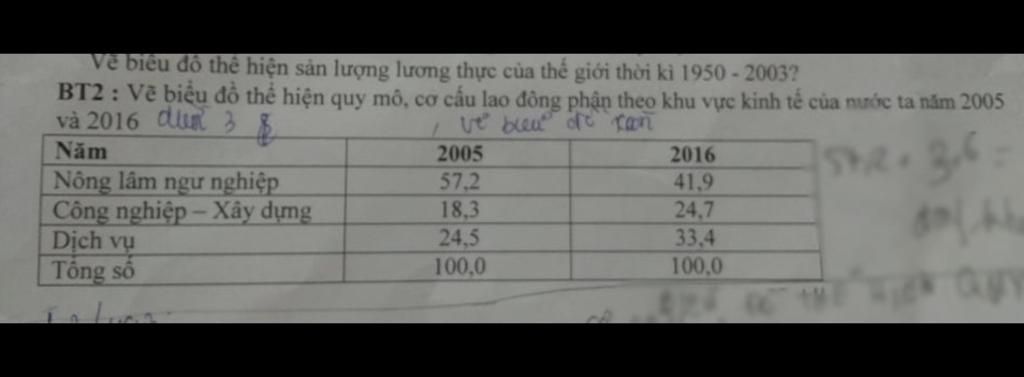 Vẽ biểu đồ thể hiện sản lượng lương thực của thế giới thời kì 1950 - 2003?
BT2 : Vẽ biểu đồ thể hiện quy mô, cơ cấu lao đông phận theo khu vực kinh tế của nước ta năm 2005
và 2016 dưới 3 , vẽ biểu đồ tròn
Năm 2005 2016
Nông lâm ngư nghiệp 57,2 41,9
Công nghiệp – Xây dựng 18,3 24,7
Dịch vụ 24,5 33,4
Tổng số 100,0 100,0
57,2 . 3,6 =